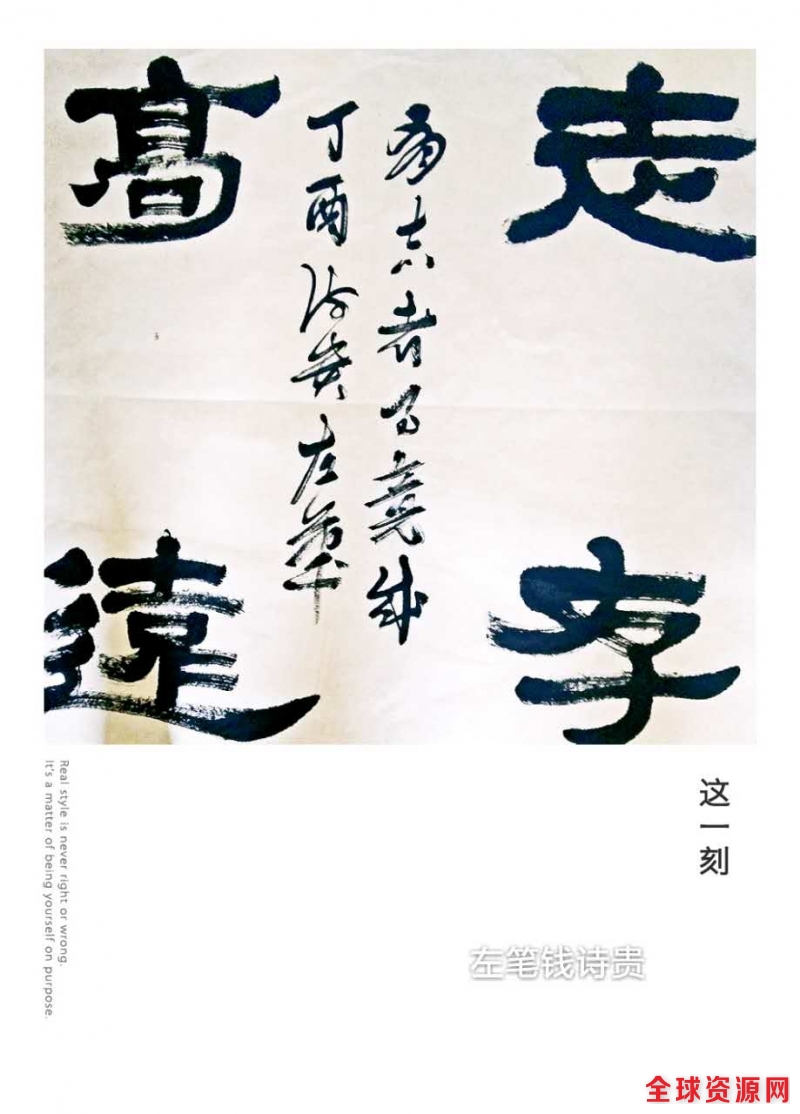 志存
有志者事竟成
丁酉诗贵左筆
髙遠
这一刻
Real style is never right or wrong.
It's a matter of being yourself on purpose.
左笔钱诗贵
全球资源网